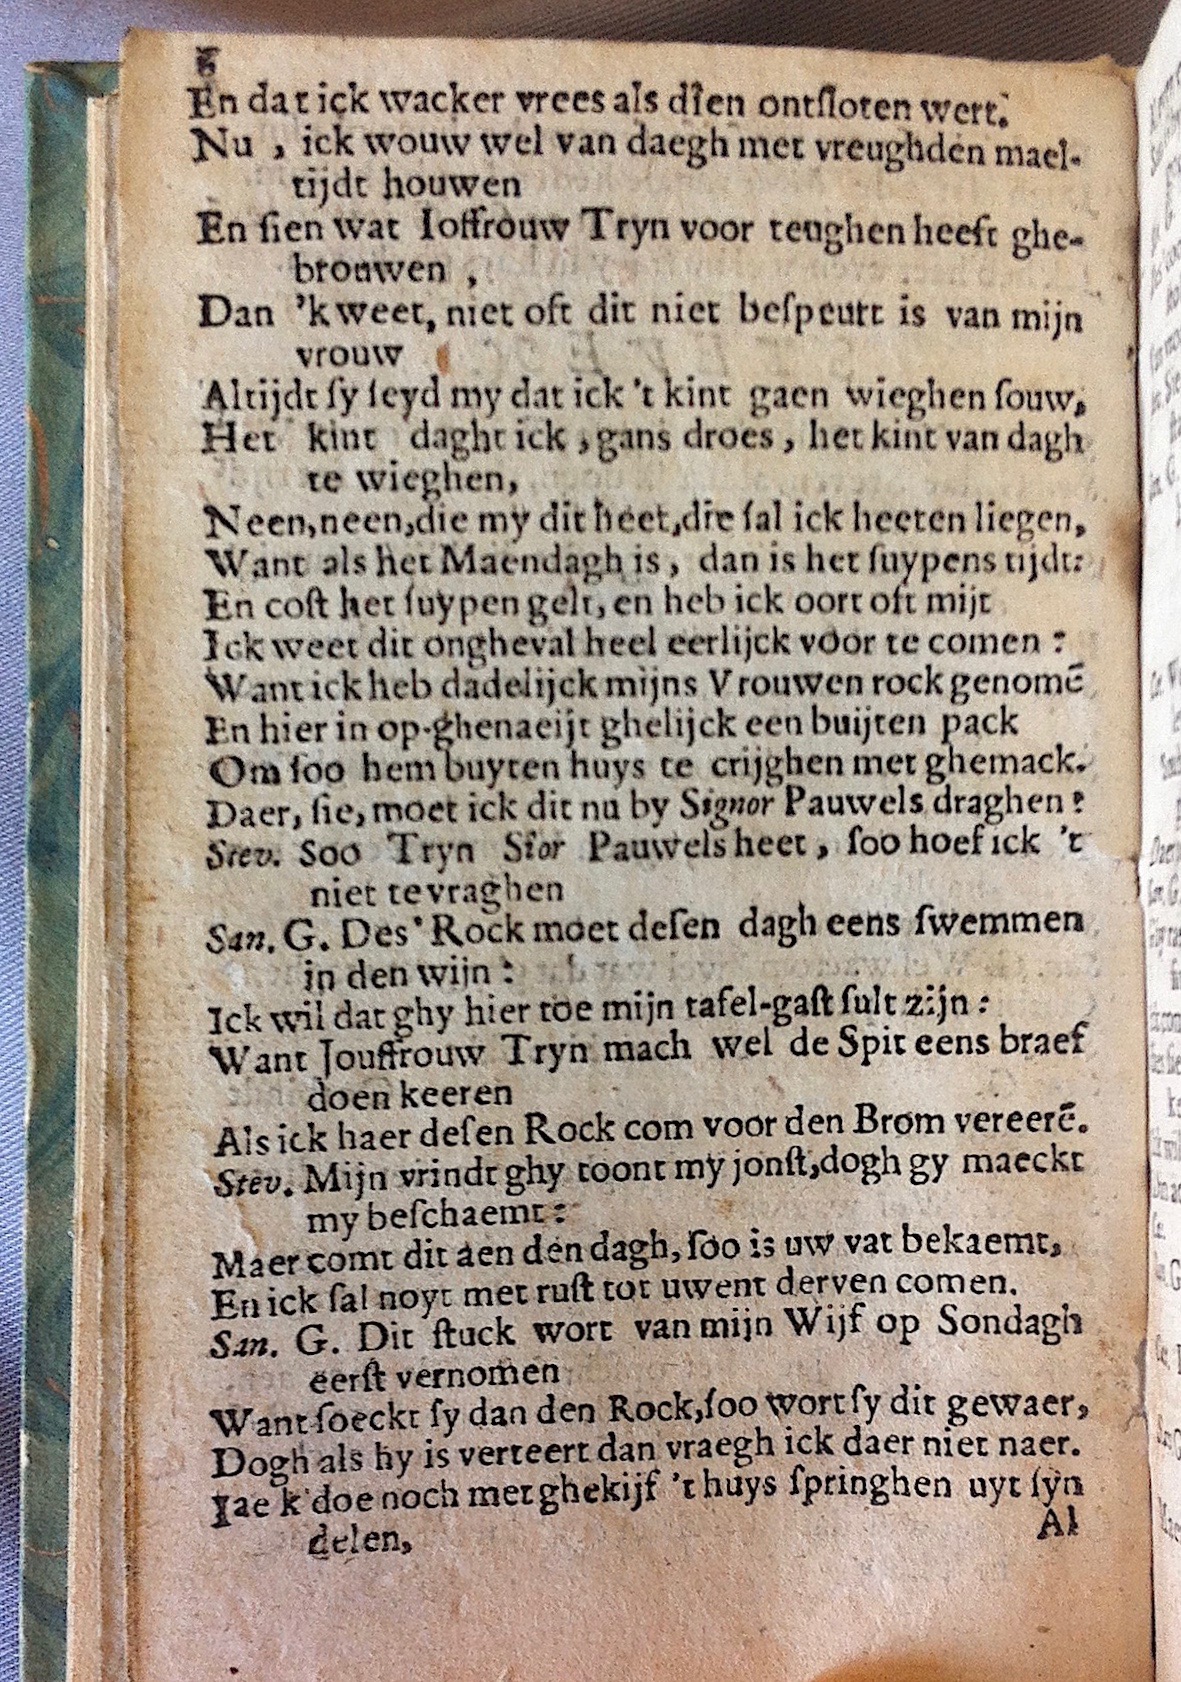 En dat ick wacker vrees als dien ontſloten wert.
Nu , ick wouw wel van daegh met vreughden mael-
tijdt houwen
En ſien wat Ioffrouw Tryn voor teughen heeft ghe-
brouwen ,
Dan 'k weet, niet oft dit niet beſpeurt is van mijn
vrouw
Altijdt ſy ſeyd my dat ick 't kint gaen wieghen ſouw,
Het kint daght ick , gans droes , het kint van dagh
te wieghen,
Neen, neen, die my dit heet, die ſal ick heeten liegen,
Want als het Maendagh is , dan is het ſuypens tijdt:
En coſt het ſuypen gelt, en heb ick oort oft mijt
Ick weet dit ongheval heel eerlijck voor te comen :
Want ick heb dadelijck mijns Vrouwen rock genomē
En hier in op-ghenaeijt ghelijck een buijten pack
Om ſoo hem buyten huys te crijghen met ghemack.
Daer, ſie, moet ick dit nu by Signor Pauwels draghen?
Stev. Soo Tryn Sior Pauwels heet , ſoo hoef ick 't
niet te vraghen
San. G. Des' Rock moet deſen dagh eens ſwemmen
in den wijn :
Ick wil dat ghy hier toe mijn tafel-gaſt ſult zijn :
Want Jouffrouw Tryn mach wel de Spit eens braef
doen keeren
Als ick haer deſen Rock com voor den Brom vereerē.
Stev. Mijn vrindt ghy toont my jonſt, dogh gy maeckt
my beſchaemt :
Maer comt dit aen den dagh, ſoo is uw vat bekaemt,
En ick ſal noyt met ruſt tot uwent derven comen.
San. G. Dit ſtuck wort van mijn Wijf op Sondagh
eerſt vernomen
Want ſoeckt ſy dan den Rock, ſoo wort ſy dit gewaer,
Dogh als hy is verteert dan vraegh ick daer niet naer.
Iae k doe noch met ghekijf 't huys ſpringhen uyt ſyn
delen,
Al